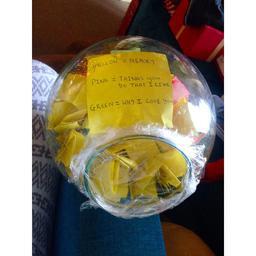 YELLOW = MEMORY
PINK = THINGS YOU
DO THAT I LIKE
GREEN = WHY I LOVE YOU